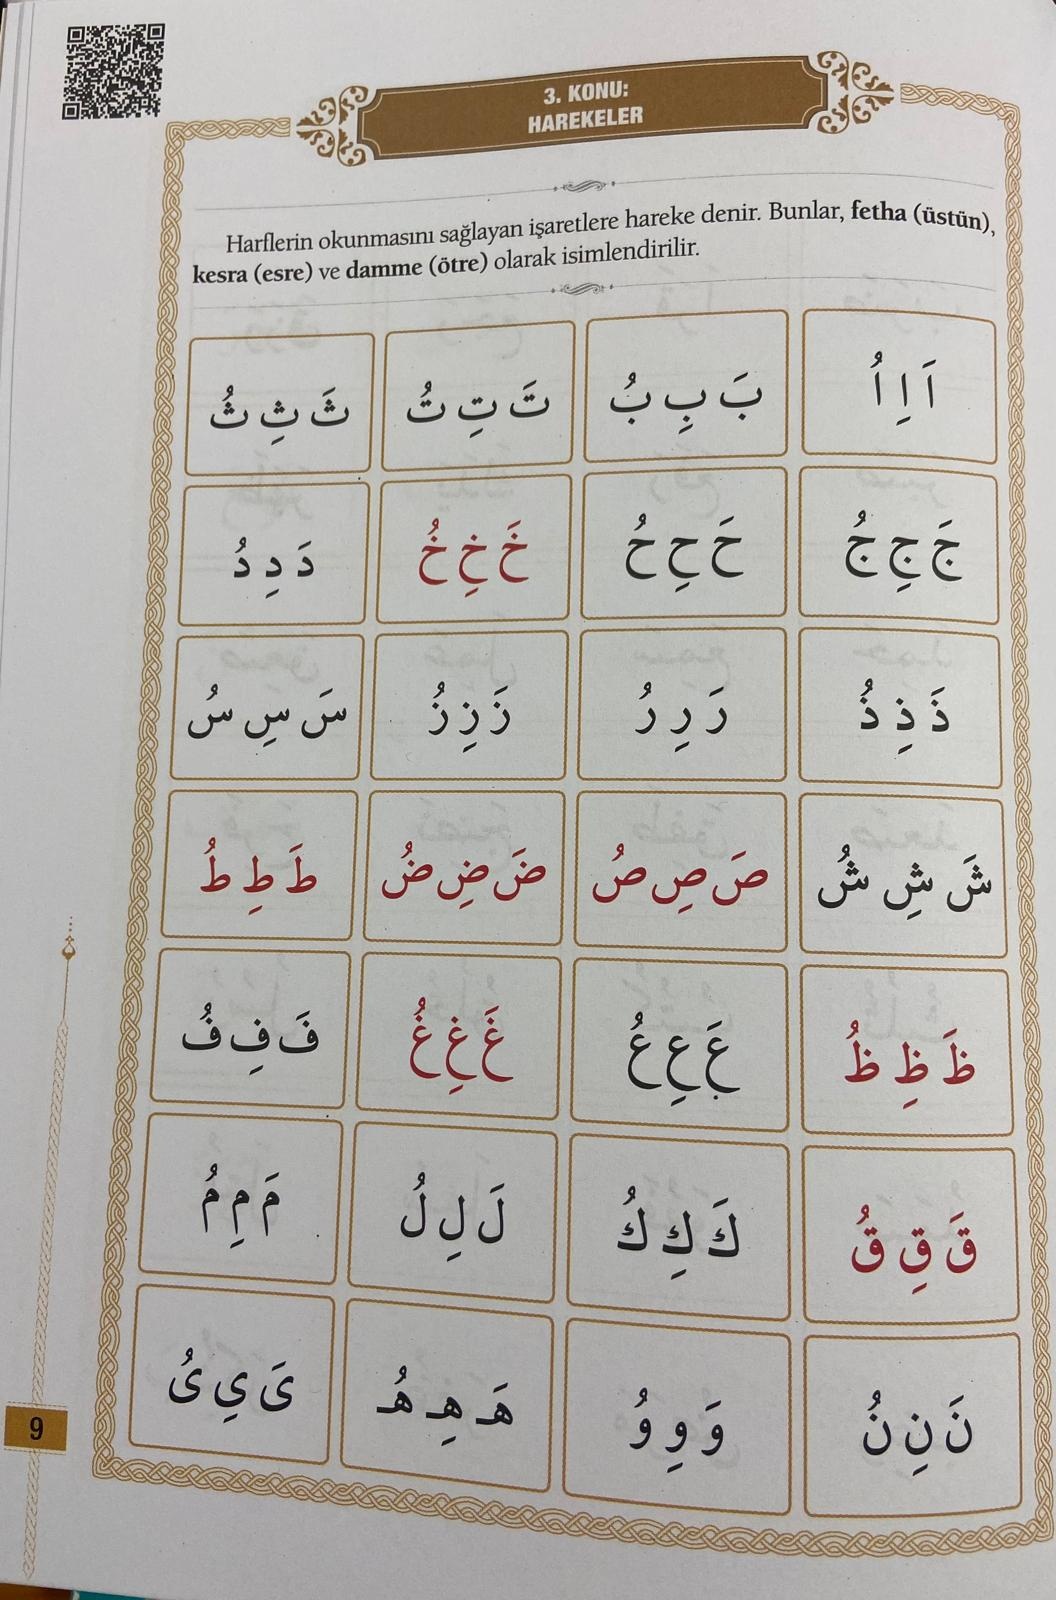 3. KONU:
HAREKELER
Harflerin okunmasını sağlayan işaretlere hareke denir. Bunlar, fetha (üstün),
kesra (esre) ve damme (ötre) olarak isimlendirilir.
اَ اِ اُ
بَ بِ بُ
تَ تِ تُ
ثَ ثِ ثُ
جَ جِ جُ
حَ حِ حُ
خَ خِ خُ
دَ دِ دُ
ذَ ذِ ذُ
رَ رِ رُ
زَ زِ زُ
سَ سِ سُ
شَ شِ شُ
صَ صِ صُ
ضَ ضِ ضُ
طَ طِ طُ
ظَ ظِ ظُ
عَ عِ عُ
غَ غِ غُ
فَ فِ فُ
قَ قِ قُ
كَ كِ كُ
لَ لِ لُ
مَ مِ مُ
نَ نِ نُ
وَ وِ وُ
هَـ هِـ هُـ
ىَ ىِ ىُ
9